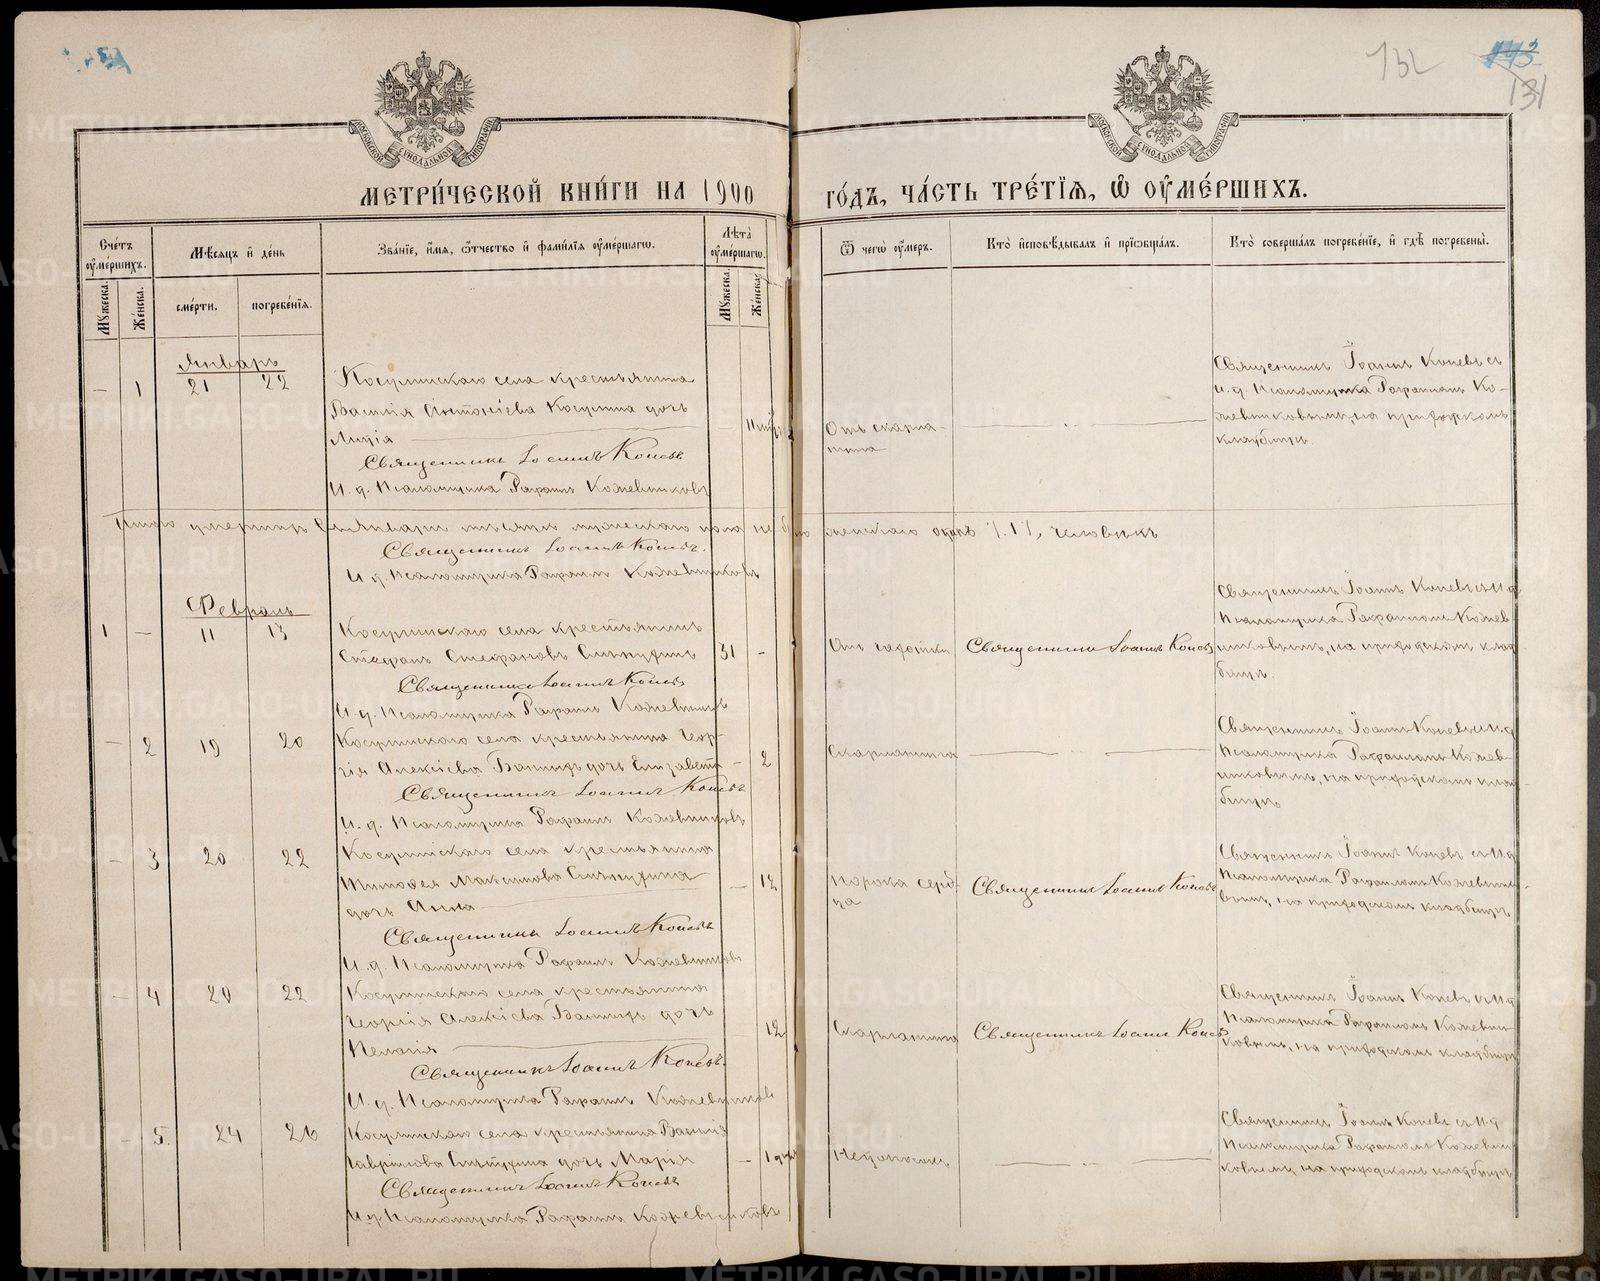 132
143
131
МЕТРИ́ЧЕСКОЙ КНИ́ГИ НА 1900 ГО́ДЪ, ЧА́СТЬ ТРЕ́ТІЯ, Ѿ ОУМЕ́РШИХЪ.
МОСКОВСКОЙ СѴНОДАЛЬНОЙ ТИПОГРАФІИ
МОСКОВСКОЙ СѴНОДАЛЬНОЙ ТИПОГРАФІИ
Сче́тъ оуме́ршихъ.
Мꙋжеска.
Же́нска.
Мѣсяцъ и де́нь
сме́рти.
погребе́нїя.
Зва́нїе, и́мя, ѻ҆́тчество и фами́лїя оуме́ршагѡ.
Лѣта̀ оуме́ршагѡ.
Мꙋжеска.
Же́нска.
Ѿ чегѡ̀ оу́меръ.
Кто̀ исповѣ́дывалъ и прїѡбща́лъ.
Кто̀ соверша́лъ погребе́нїе, и гдѣ̀ погребены̀.
Январь
— 1 21 22 Косулинскаго села крестьянина
Василія Антоніева Косулина дочь
Лидія
Священникъ Іоаннъ Коневъ
И. д. Псаломщика Рафаилъ Кожевниковъ
Отъ скарла-
тина
Священникъ Іоаннъ Коневъ съ
и. д. Псаломщика Рафаиломъ Ко-
жевниковымъ, на приходскомъ
кладбищѣ.
Итого умершихъ въ Январѣ мѣсяцѣ мужескаго пола не было женскаго одинъ /.1/, человѣкъ
Священникъ Іоаннъ Коневъ.
И. д. Псаломщика Рафаилъ Кожевниковъ
Февраль
1 — 11 13 Косулинскаго села крестьянинъ
Стефанъ Стефановъ 31 -
Священникъ Іоаннъ Коневъ
И. д. Псаломщика Рафаилъ Кожевниковъ
Отъ чахотки
Священникъ Іоаннъ Коневъ
Священникъ Іоаннъ Коневъ съ И. д.
Псаломщика Рафаиломъ Кожев-
никовымъ, на приходскомъ клад-
бищѣ.
— 2 19 20 Косулинскаго села крестьянина Геор-
гія Алексіева дочь Елизавета — 2
Священникъ Іоаннъ Коневъ
И. д. Псаломщика Рафаилъ Кожевниковъ
Скарлатина
Священникъ Іоаннъ Коневъ съ И. д.
Псаломщика Рафаиломъ Кожев-
никовымъ, на приходскомъ клад-
бищѣ
- 3 20 22 Косулинскаго села крестьянина
Тимофея Максимова — 12
дочь Анна
Священникъ Іоаннъ Коневъ
И. д. Псаломщика Рафаилъ Кожевниковъ
Порока серд-
ца
Священникъ Іоаннъ Коневъ
Священникъ Іоаннъ Коневъ съ И. д.
Псаломщика Рафаиломъ Кожевнико-
вымъ, на приходскомъ кладбищѣ
- 4 20 22 Косулинскаго села крестьянина
Георгія Алексіева дочь
Пелагія 12
Священникъ Іоаннъ Коневъ.
И. д. Псаломщика Рафаилъ Кожевниковъ
Скарлатина
Священникъ Іоаннъ Коневъ
Священникъ Іоаннъ Коневъ съ И. д.
Псаломщика Рафаиломъ Кожевни-
ковымъ, на приходскомъ кладбищѣ
- 5. 24 26 Косулинскаго села крестьянина Василія
Гаврилова дочь Марія — 1 дня
Священникъ Іоаннъ Коневъ
И. д. Псаломщика Рафаилъ Кожевниковъ
Священникъ Іоаннъ Коневъ съ И. д.
Псаломщика Рафаиломъ Кожевни-
ковымъ на приходскомъ кладбищѣ
METRIKI.GASO-URAL.RU